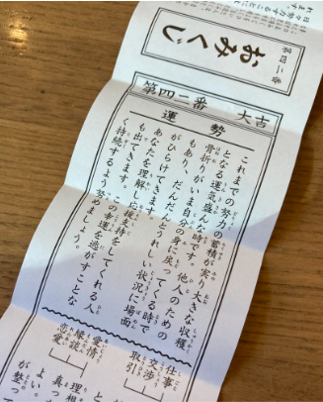 おみくじ
第四二番
第四二番
大吉
運勢
これまでの努力の蓄積が実り大きな収穫
となる運気盛んな時です。他人のための
骨折りがいま自分の身に戻ってくる時で
もあり、だんだんとうれしい状況に場面
がひらけてきます。
あなたを理解し応援支持をしてくれる人
も出てきます。この幸運を逃がすことな
く持続するよう努めましょう。
仕事
交渉
取引
愛情
縁談
恋愛
理想
真っ
よい。
が整っ